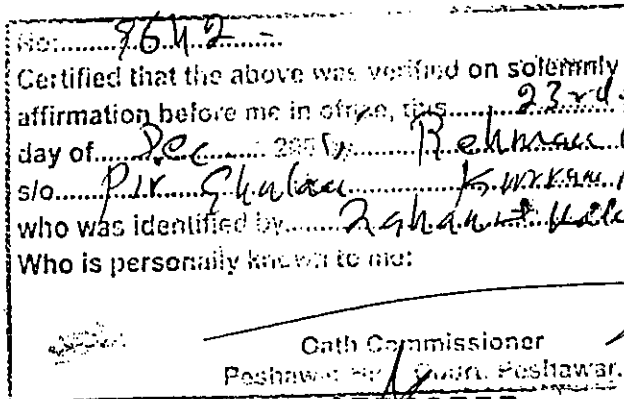 No:.........9642 -
Certified that the above was verified on solemnly
affirmation before me in office, this..........23rd
day of....Dec........ 200 by.........Rehman
s/o....Pir Ghulam
who was identified by.......
Who is personally known to me:
Oath Commissioner
Peshawar High Court, Peshawar.